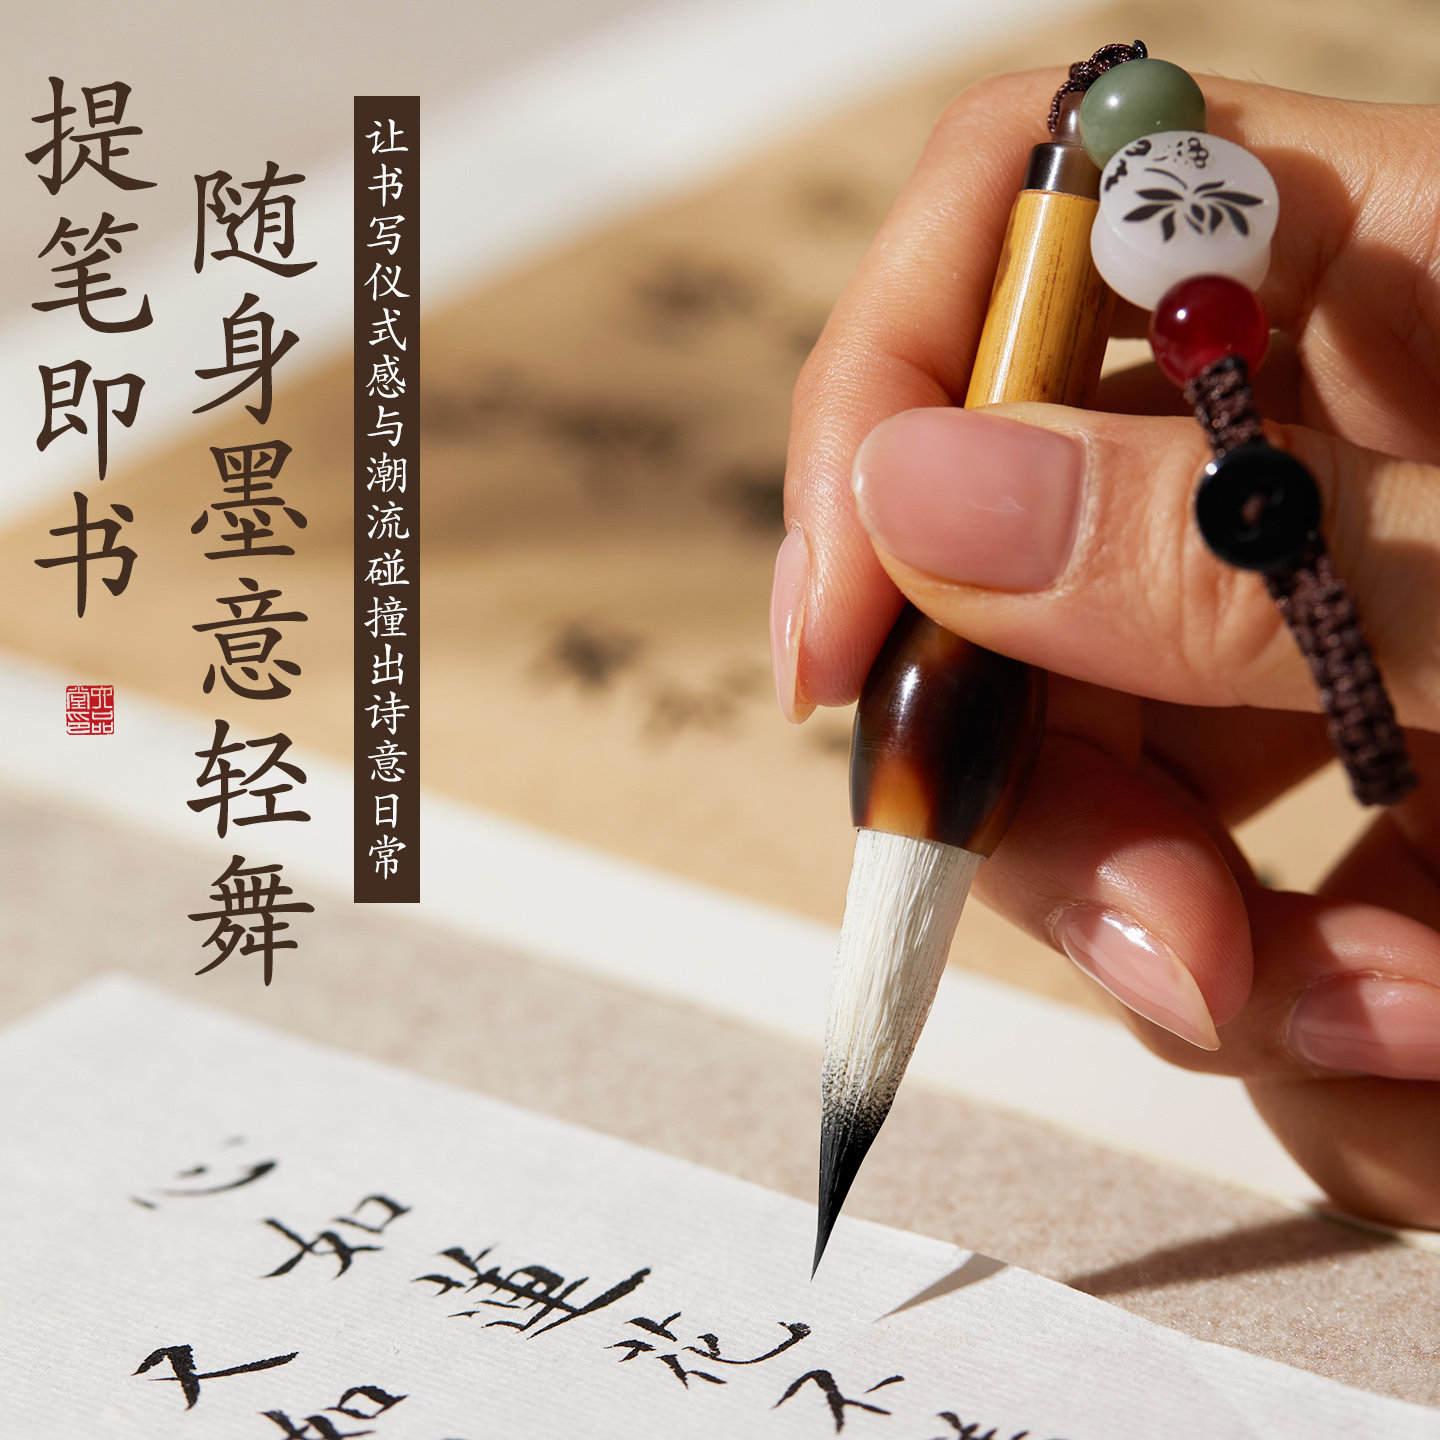 提笔即书
随身墨意轻舞
让书写仪式感与潮流碰撞出诗意日常
六品堂印
心如蓮花不
又如